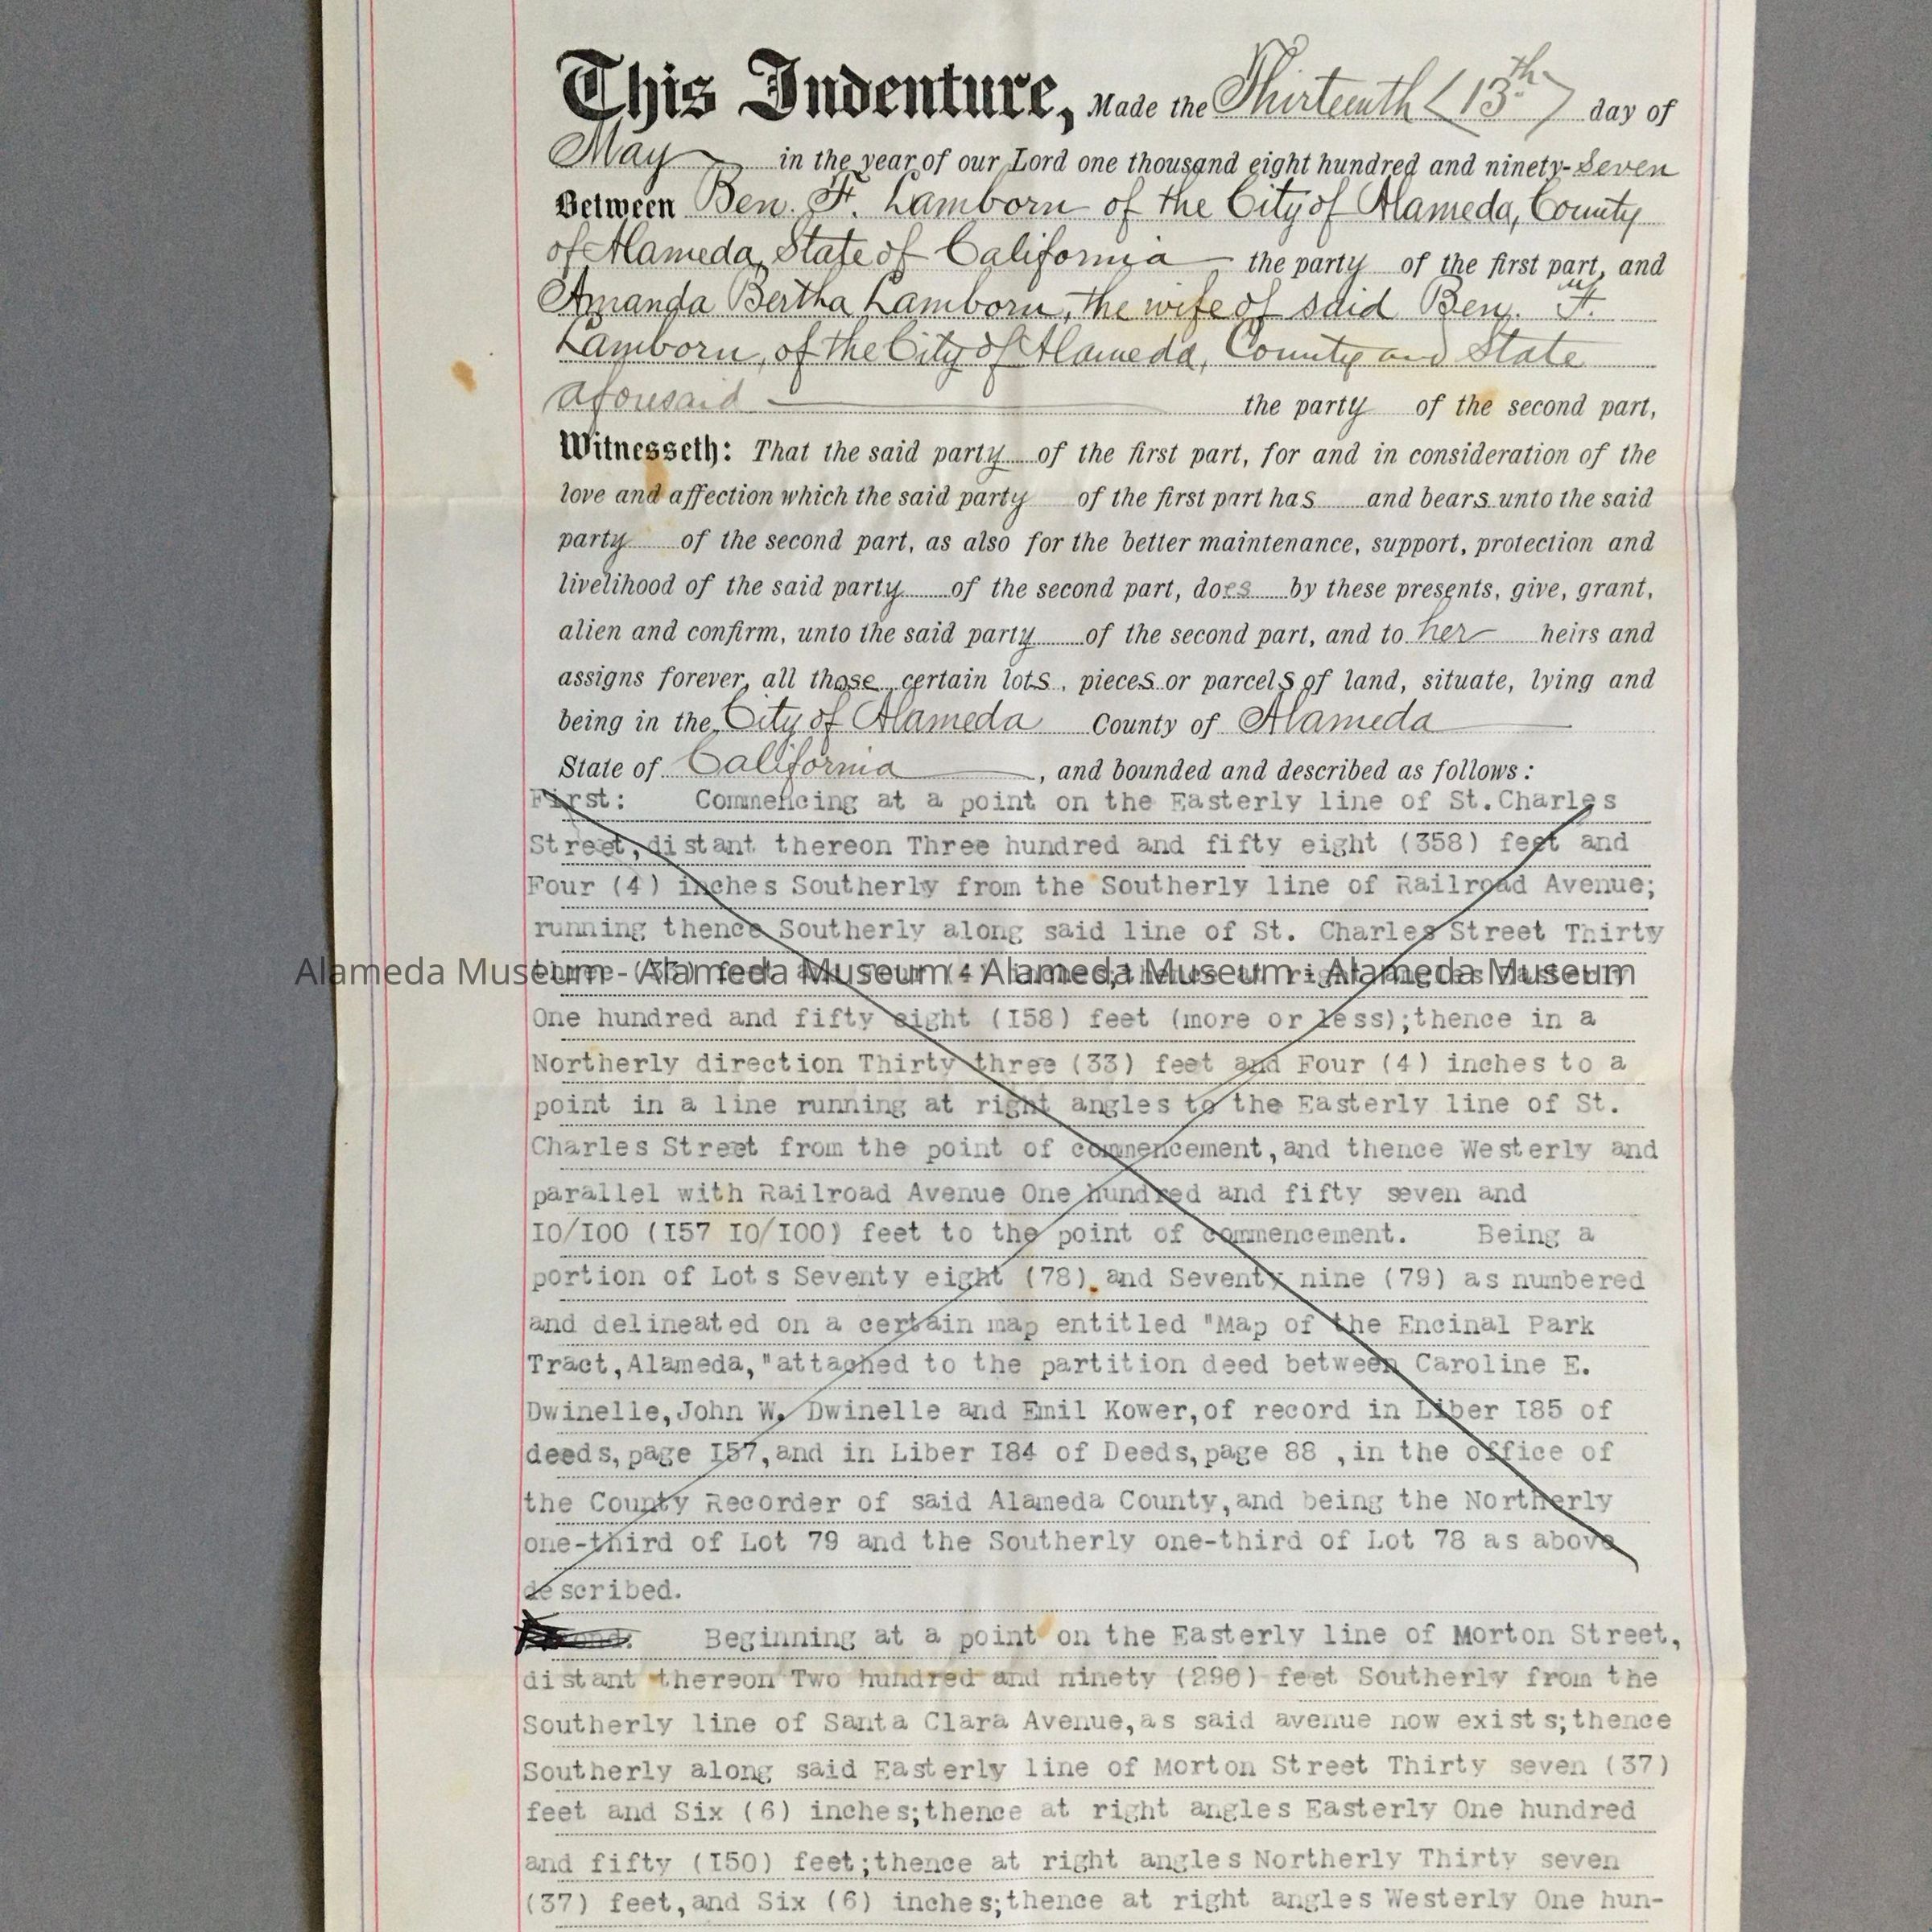 This Indenture, Made the Thirteenth (13th) day of
May in the year of our Lord one thousand eight hundred and ninety-seven
Between Ben. F. Lamborn of the City of Alameda, County
of Alameda, State of California the party of the first part, and
Amanda Bertha Lamborn, the wife of said Ben. F.
Lamborn, of the City of Alameda, County and State
aforesaid the party of the second part,
Witnesseth: That the said party of the first part, for and in consideration of the
love and affection which the said party of the first part has and bears unto the said
party of the second part, as also for the better maintenance, support, protection and
livelihood of the said party of the second part, does by these presents, give, grant,
alien and confirm, unto the said party of the second part, and to her heirs and
assigns forever, all those certain lots, pieces or parcels of land, situate, lying and
being in the City of Alameda County of Alameda
State of California, and bounded and described as follows:
First: Commencing at a point on the Easterly line of St.Charles
Street,distant thereon Three hundred and fifty eight (358) feet and
Four (4) inches Southerly from the Southerly line of Railroad Avenue;
running thence Southerly along said line of St. Charles Street Thirty
three (33) feet and Four (4) inches;thence at right angles Easterly
Alameda Museum - Alameda Museum - Alameda Museum - Alameda Museum
One hundred and fifty eight (I58) feet (more or less);thence in a
Northerly direction Thirty three (33) feet and Four (4) inches to a
point in a line running at right angles to the Easterly line of St.
Charles Street from the point of commencement,and thence Westerly and
parallel with Railroad Avenue One hundred and fifty seven and
I0/I00 (I57 I0/I00) feet to the point of commencement. Being a
portion of Lots Seventy eight (78). and Seventy nine (79) as numbered
and delineated on a certain map entitled "Map of the Encinal Park
Tract,Alameda,"attached to the partition deed between Caroline E.
Dwinelle,John W. Dwinelle and Emil Kower,of record in Liber I85 of
deeds,page I57,and in Liber I84 of Deeds,page 88 ,in the office of
the County Recorder of said Alameda County,and being the Northerly
one-third of Lot 79 and the Southerly one-third of Lot 78 as above
described.
Second: Beginning at a point on the Easterly line of Morton Street,
distant thereon Two hundred and ninety (290) feet Southerly from the
Southerly line of Santa Clara Avenue,as said avenue now exists;thence
Southerly along said Easterly line of Morton Street Thirty seven (37)
feet and Six (6) inches;thence at right angles Easterly One hundred
and fifty (I50) feet;thence at right angles Northerly Thirty seven
(37) feet,and Six (6) inches;thence at right angles Westerly One hun-